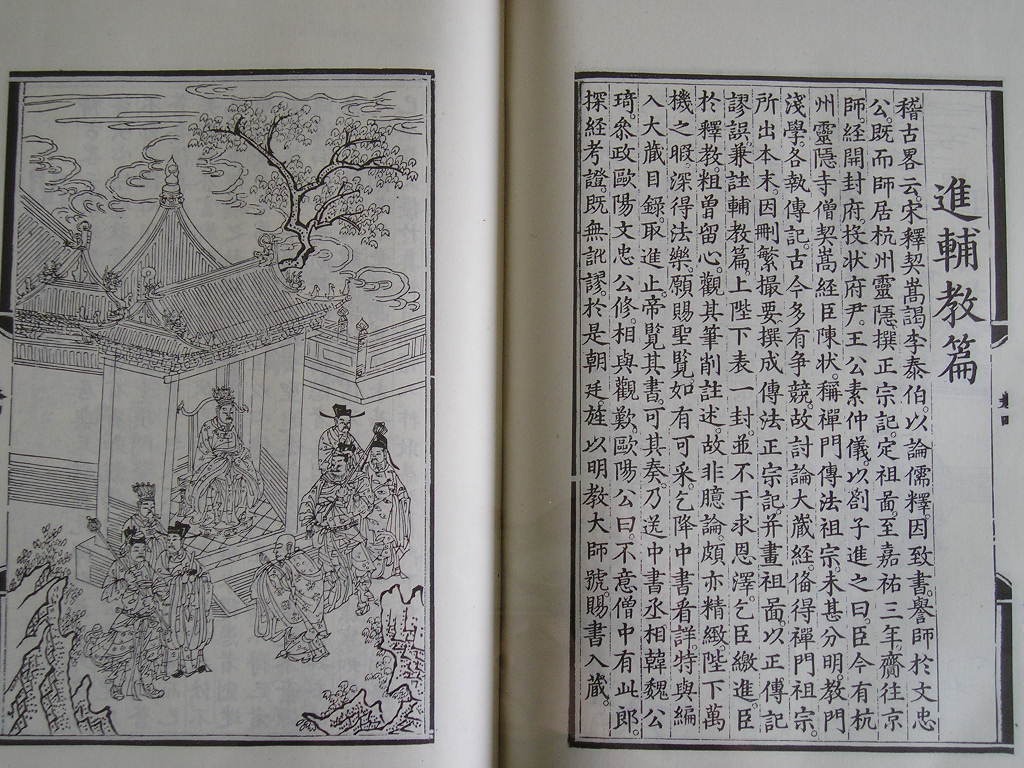 進輔教篇
稽古畧云。宋釋契嵩謁李泰伯。以論儒釋。因致書。譽師於文忠
公。既而師居杭州靈隱。撰正宗記。定祖圖。至嘉祐三年。齎往京
師。經開封府。投狀府尹。王公素仲儀。以劄子進之曰。臣今有杭
州靈隱寺僧契嵩。經臣陳狀。稱禪門傳法祖宗。未甚分明。教門
淺學。各執傳記。古今多有争競。故討論大藏經。俻得禪門祖宗。
所出本末。因刪繁撮要。撰成傳法正宗記。并畫祖圖。以正傳記
謬誤。兼註輔教篇。上陛下表一封。並不干求恩澤。乞臣繳進。臣
於釋教。粗曽留心。觀其筆削註述。故非臆論。頗亦精緻。陛下萬
機之暇。深得法樂。願賜聖覧。如有可采。乞降中書看詳。特與編
入大藏目録。取進止。帝覧其書。可其奏。乃送中書丞相韓魏公
琦。叅政歐陽文忠公修。相與觀歎。歐陽公曰。不意僧中有此郎。
探經考證。既無訛謬。於是朝廷旌以明教大師號。賜書入藏。